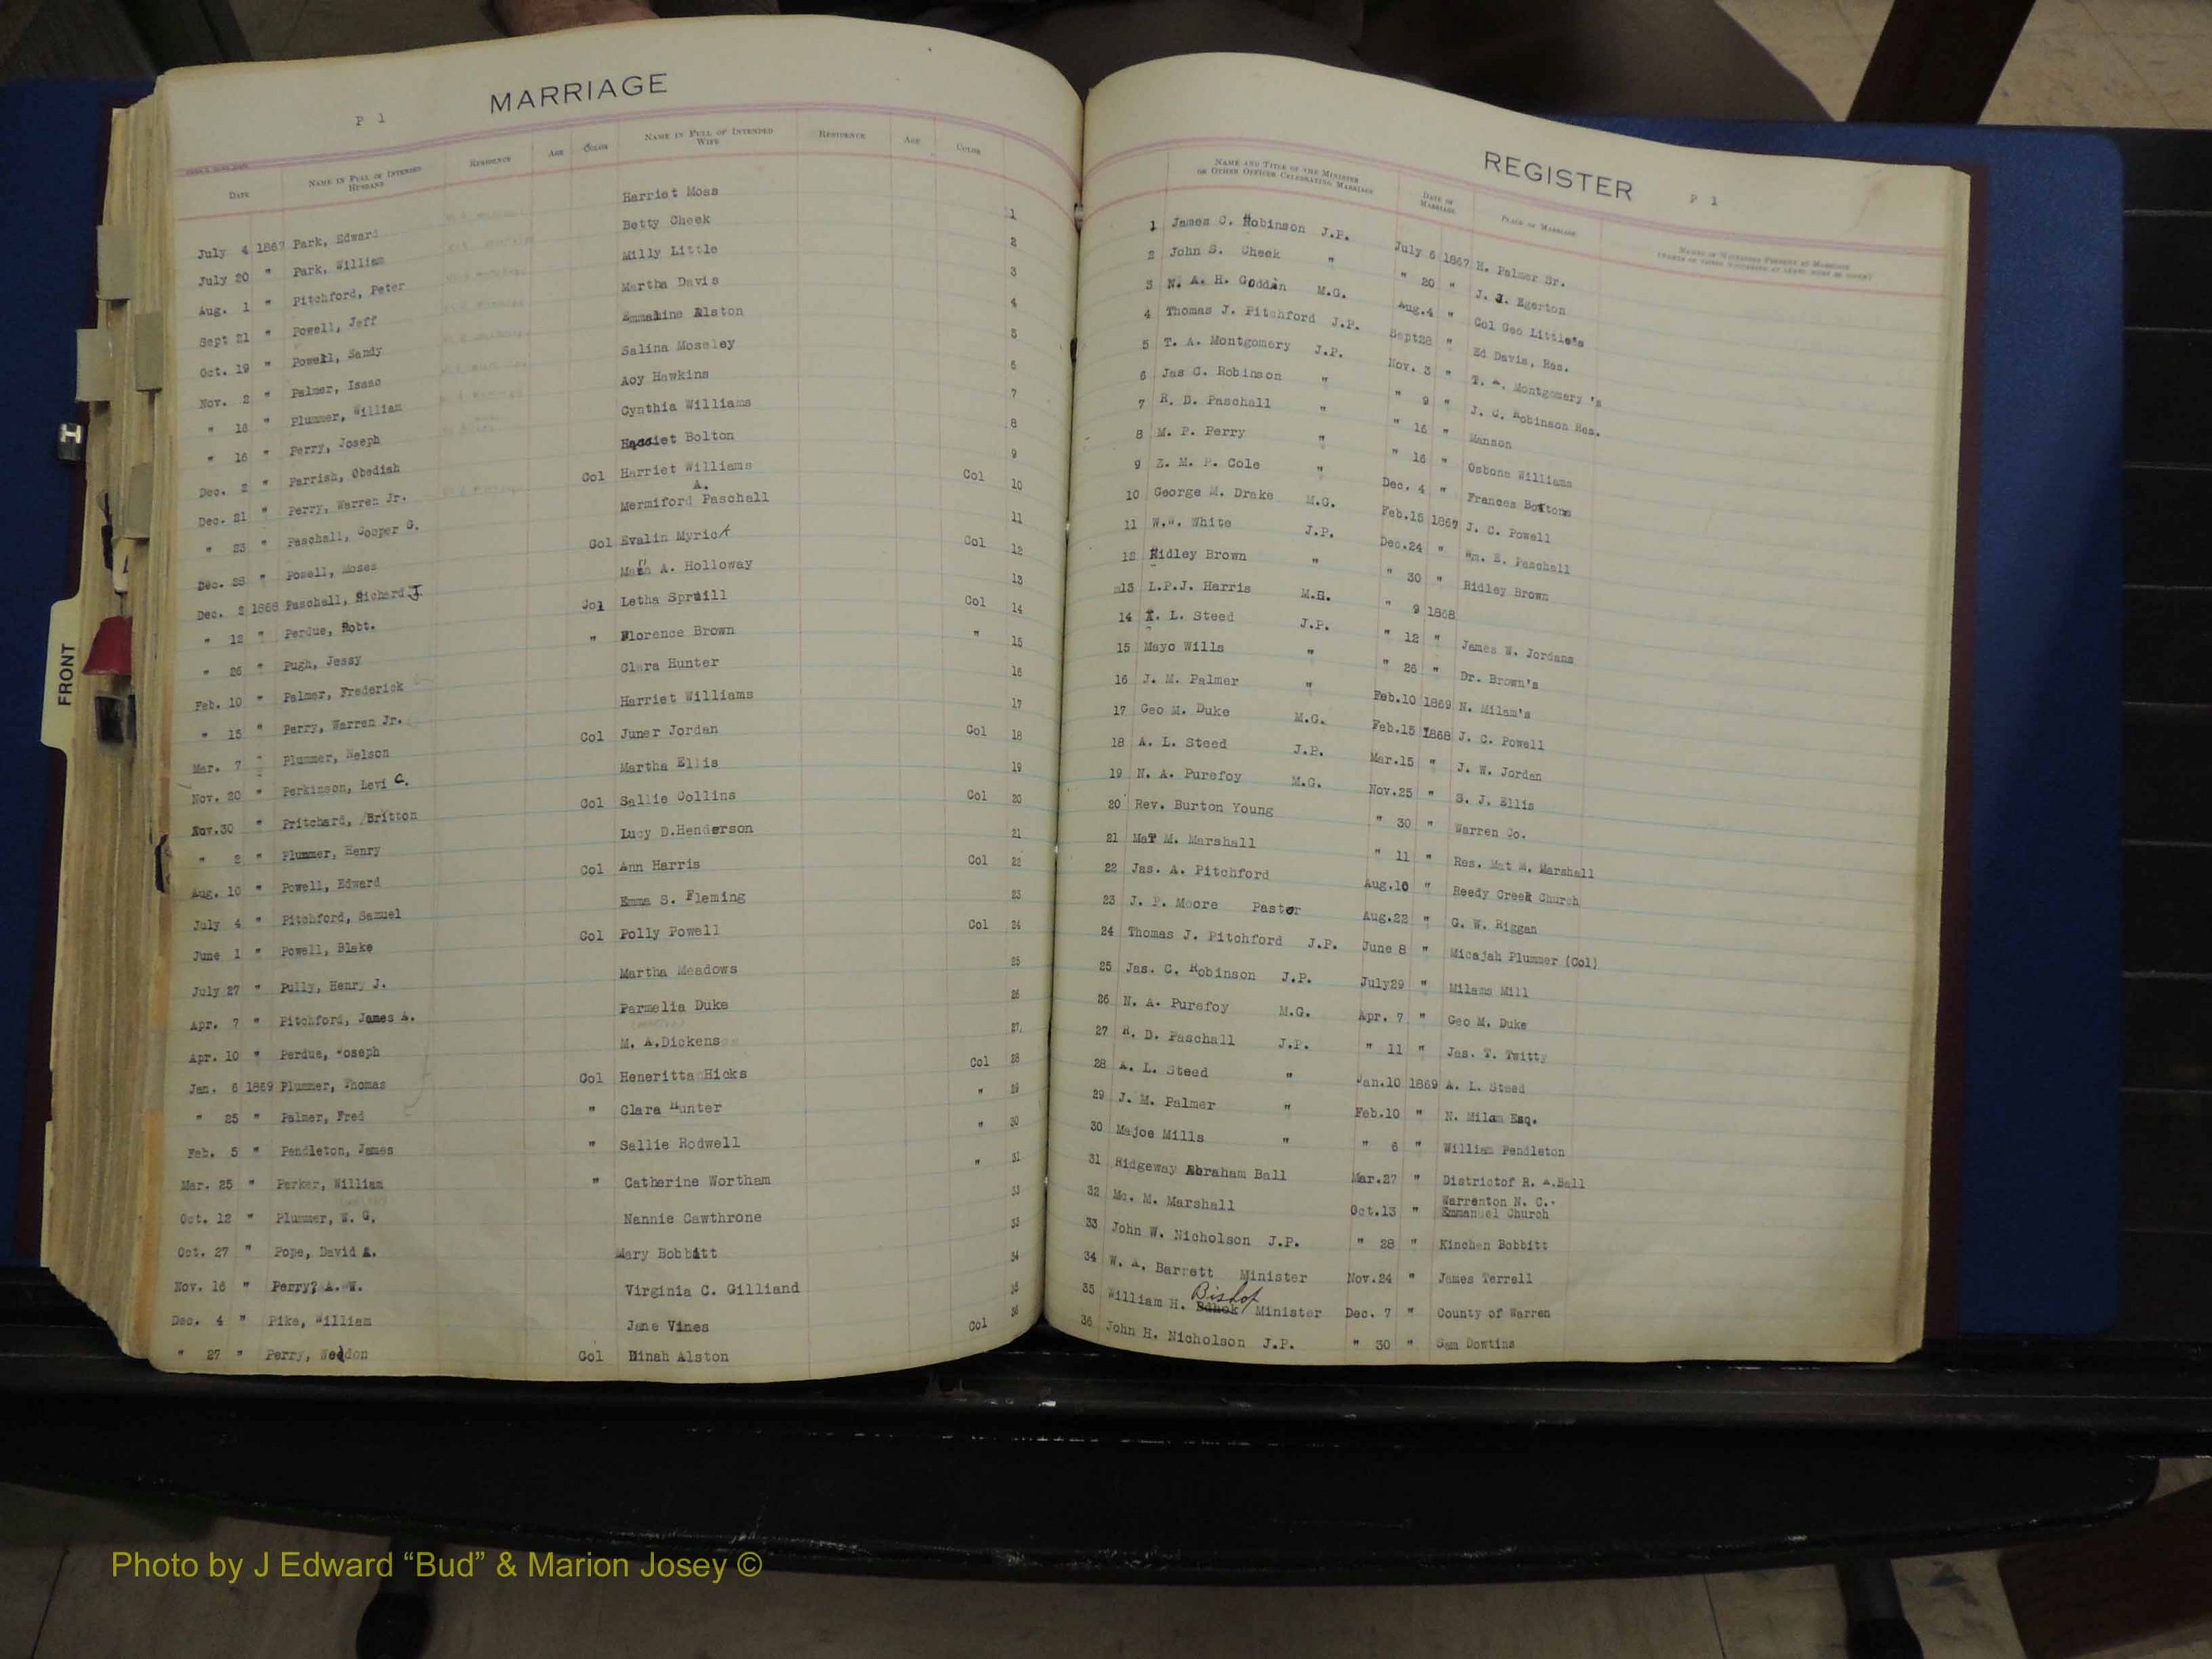 MARRIAGE
P 1
DATE NAME IN FULL OF INTENDED HUSBAND RESIDENCE AGE COLOR NAME IN FULL OF INTENDED WIFE RESIDENCE AGE COLOR
July 4 1867 Park, Edward Harriet Moss 1
July 20 " Park, William Betty Cheek 2
Aug. 1 " Pitchford, Peter Milly Little 3
Sept 21 " Powell, Jeff Martha Davis 4
Oct. 19 " Powell, Sandy Emmaline Alston 5
Nov. 2 " Palmer, Isaac Salina Moseley 6
" 16 " Plummer, William Acy Hawkins 7
" 16 " Perry, Joseph Cynthia Williams 8
Dec. 2 " Parrish, Obediah Harriet Bolton 9
Dec. 21 " Perry, Warren Jr. Col Harriet Williams Col 10
" 23 " Paschall, Cooper G. Mermiford A. Paschall 11
Dec. 28 " Powell, Moses Col Evalin Myrick Col 12
Dec. 2 1868 Paschall, Richard J. A. Holloway 13
" 12 " Perdue, Robt. Col Letha Spruill Col 14
" 26 " Pugh, Jessy " Florence Brown " 15
Feb. 10 " Palmer, Frederick Clara Hunter 16
" 15 " Perry, Warren Jr. Harriet Williams 17
Mar. 7 " Plummer, Nelson Col Juner Jordan Col 18
Nov. 20 " Perkinson, Levi C. Martha Ellis 19
Nov.30 " Pritchard, Britton Col Sallie Collins Col 20
" 2 " Plummer, Henry Lucy D.Henderson 21
Aug. 10 " Powell, Edward Col Ann Harris Col 22
July 4 " Pitchford, Samuel Emma S. Fleming 23
June 1 " Powell, Blake Col Polly Powell Col 24
July 27 " Pully, Henry J. Martha Meadows 25
Apr. 7 " Pitchford, James A. Parmelia Duke 26
Apr. 10 " Perdue, Joseph M. A.Dickens 27
Jan. 6 1869 Plummer, Thomas Col Heneritta Hicks Col 28
" 25 " Palmer, Fred " Clara Hunter " 29
Feb. 5 " Pendleton, James " Sallie Rodwell " 30
Mar. 25 " Parker, William " Catherine Wortham " 31
Oct. 12 " Plummer, W. G. Nannie Cawthrone 33
Oct. 27 " Pope, David A. Mary Bobbitt 33
Nov. 16 " Perry? A. W. Virginia C. Gilliand 34
Dec. 4 " Pike, William Jane Vines 35
" 27 " Perry, Weldon Col Dinah Alston Col 36
REGISTER
P 1
NAME AND TITLE OF THE MINISTER OR OTHER OFFICER CELEBRATING MARRIAGE DATE OF MARRIAGE PLACE OF MARRIAGE
1 James C. Robinson J.P. July 6 1867 H. Palmer Sr.
2 John S. Cheek " " 20 " J. J. Egerton
3 N. A. H. Goddin M.G. Aug.4 " Col Geo Little's
4 Thomas J. Pitchford J.P. Sept28 " Ed Davis, Res.
5 T. A. Montgomery J.P. Nov. 3 " T. A. Montgomery 's
6 Jas C. Robinson " " 9 " J. C. Robinson Res.
7 R. D. Paschall " " 16 " Manson
8 M. P. Perry " " 16 " Osbons Williams
9 Z. M. P. Cole " Dec. 4 " Frances Boltons
10 George M. Drake M.G. Feb.15 1867 J. C. Powell
11 W.W. White J.P. Dec.24 " Wm. E. Paschall
12 Ridley Brown " " 30 " Ridley Brown
13 L.P.J. Harris M.G. " 9 1868
14 L. Steed J.P. " 12 " James W. Jordans
15 Mayo Wills " " 26 " Dr. Brown's
16 J. M. Palmer " Feb.10 1869 N. Milam's
17 Geo M. Duke M.G. Feb.15 1868 J. C. Powell
18 A. L. Steed J.P. Mar.15 " J. W. Jordan
19 N. A. Purefoy M.G. Nov.25 " S. J. Ellis
20 Rev. Burton Young " 30 " Warren Co.
21 Mat M. Marshall " 11 " Res. Mat M. Marshall
22 Jas. A. Pitchford Aug.10 " Reedy Creek Church
23 J. P. Moore Pastor Aug.22 " G. W. Riggan
24 Thomas J. Pitchford J.P. June 8 " Micajah Plummer (Col)
25 Jas. C. Robinson J.P. July29 " Milams Mill
26 N. A. Purefoy M.G. Apr. 7 " Geo M. Duke
27 R. D. Paschall J.P. " 11 " Jas. T. Twitty
28 A. L. Steed " Jan.10 1869 A. L. Steed
29 J. M. Palmer " Feb.10 " N. Milam Esq.
30 Majoe Mills " " 6 " William Pendleton
31 Ridgeway Abraham Ball Mar.27 " Districtof R. A.Ball
32 Mc. M. Marshall Oct.13 " Warrenton N. C. Emmanuel Church
33 John W. Nicholson J.P. " 28 " Kinchen Bobbitt
34 W. A. Barrett Minister Nov.24 " James Terrell
35 William H. Bishop Minister Dec. 7 " County of Warren
36 John H. Nicholson J.P. " 30 " Sam Dowtins
FRONT
H
Photo by J Edward “Bud” & Marion Josey ©